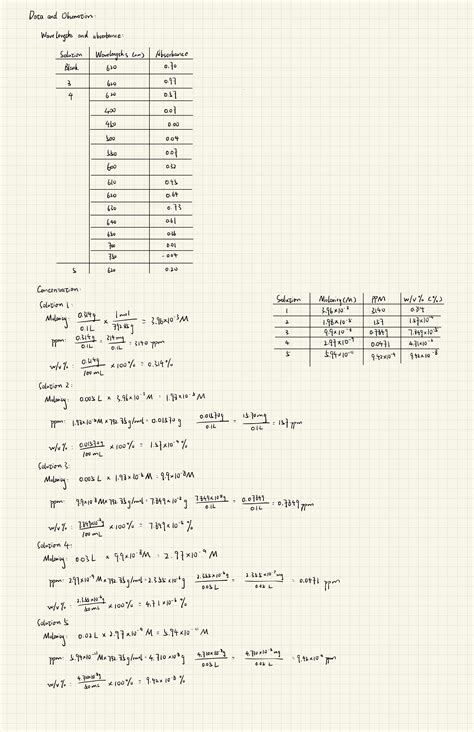 Data and Observation:
Wavelengths and absorbance:
Solution Wavelengths (nm) Absorbance
Blank 620 0.70
3 620 0.97
4 620 0.57
400 0.07
450 0.00
500 0.04
550 0.07
600 0.52
610
620 0.64
630 0.73
640 0.61
650 0.66
700 0.01
750 -0.04
5 620 0.20
Concentration:
Solution 1:
Molarity: 0.314g / 0.1L × 1 mol / 792.85g = 3.96×10⁻³ M
ppm: 0.314g / 0.1L = 314mg / 0.1L = 3140 ppm
w/v%: 0.314g / 100 mL × 100% = 0.314%
Solution Molarity (M) PPM w/v % (%)
1 3.96×10⁻³ 3140 0.314
2 1.98×10⁻⁵ 157
3 9.9×10⁻⁸ 0.7849 7.849×10⁻⁵
4 2.97×10⁻⁹ 0.0471 4.71×10⁻⁶
5 5.94×10⁻¹¹ 9.42×10⁻⁴ 9.42×10⁻⁸
Solution 2:
Molarity: 0.005 L × 3.96×10⁻³ M = 1.98×10⁻⁵ M
ppm: 1.98×10⁻⁵ M × 792.85 g/mol = 0.01570 g 0.01570g / 0.1L = 15.70mg / 0.1L = 157 ppm
w/v%: 0.01570g / 100 mL × 100% = 1.57×10⁻² %
Solution 3:
Molarity: 0.005 L × 1.98×10⁻⁵ M = 9.9×10⁻⁸ M
ppm: 9.9×10⁻⁸ M × 792.85 g/mol = 7.849×10⁻⁵ g 7.849×10⁻⁵g / 0.1L = 0.07849 / 0.1L = 0.7849 ppm
w/v%: 7.849×10⁻⁵g / 100 mL × 100% = 7.849×10⁻⁵ %
Solution 4:
Molarity: 0.03 L × 9.9×10⁻⁸ M = 2.97×10⁻⁹ M
ppm: 2.97×10⁻⁹ M × 792.85 g/mol = 2.355×10⁻⁶ g = 0.0471 ppm
w/v%: × 100% = 4.71×10⁻⁶ %
Solution 5:
Molarity: 0.02 L × 2.97×10⁻⁹ M = 5.94×10⁻¹¹ M
ppm: 5.94×10⁻¹¹ M × 792.85 g/mol = 4.710×10⁻⁸ g = 9.42×10⁻⁴ ppm
w/v%: × 100% = 9.42×10⁻⁸ %